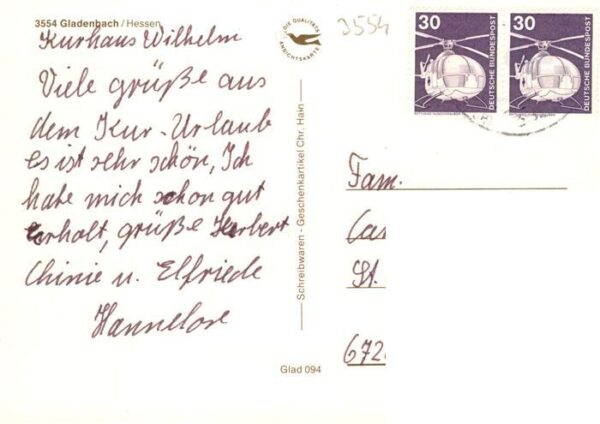 3554 Gladenbach / Hessen
Kurhaus Wilhelm
Viele grüße aus
dem Kur-Urlaub
es ist sehr schön, Ich
habe mich schon gut
erholt, grüße Herbert
Chinie u. Elfriede
Hannelore
DIE QUALITÄTS
ANSICHTSKARTE
Schreibwaren - Geschenkartikel Chr. Hain
Glad 094
3554
30
DEUTSCHE BUNDESPOST
30
DEUTSCHE BUNDESPOST
Fam.
St.
672